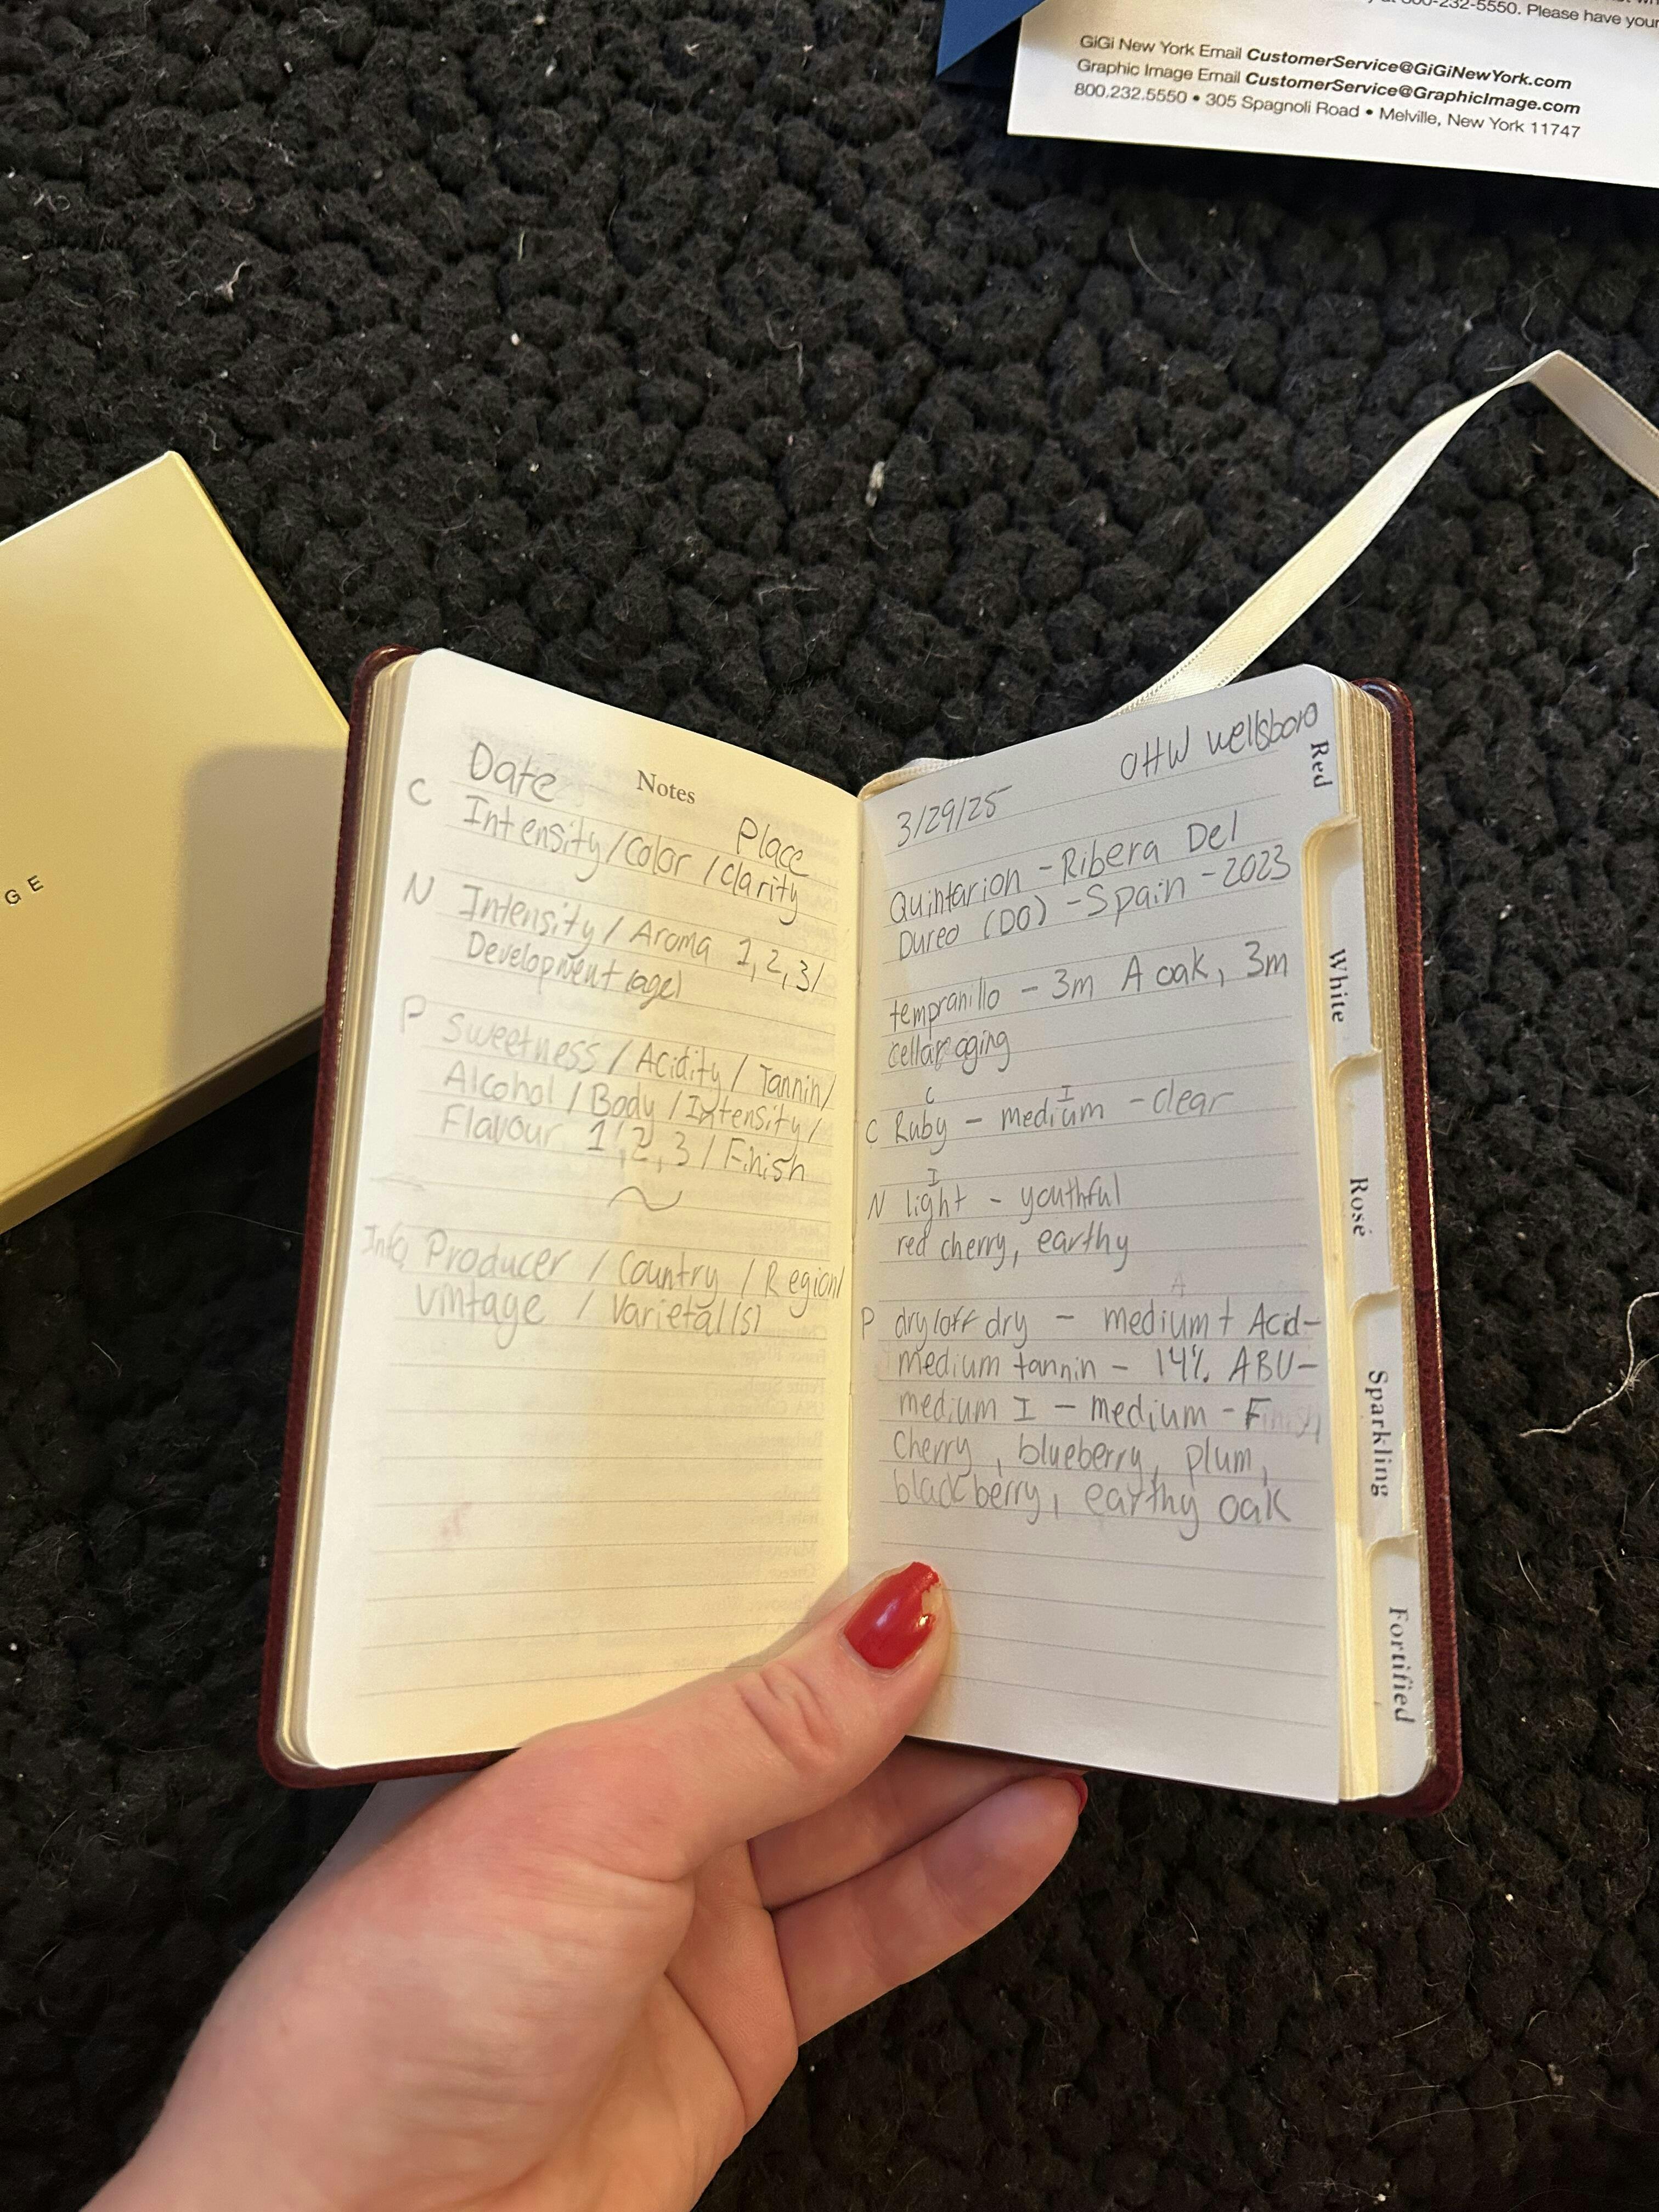 800-232-5550. Please have your
GiGi New York Email CustomerService@GiGiNewYork.com
Graphic Image Email CustomerService@GraphicImage.com
800.232.5550 • 305 Spagnoli Road • Melville, New York 11747
GE
Notes
Date
Place
C Intensity/Color/Clarity
N Intensity/Aroma 1,2,3/
Development (age)
P Sweetness/Acidity/Tannin/
Alcohol/Body/Intensity/
Flavour 1,2,3/Finish
Info Producer/Country/Region/
Vintage/Varietal(s)
OHW wellsboro
3/29/25
Quintarion - Ribera Del
Dureo (DO) - Spain - 2023
tempranillo - 3m A oak, 3m
cellar aging
C I
C Ruby - medium - clear
I
N light - youthful
red cherry, earthy
A
P dry/off dry - medium + Acid-
medium tannin - 14% ABU-
medium I - medium - Finish
Cherry, blueberry, plum,
blackberry, earthy oak
Red
White
Rosé
Sparkling
Fortified